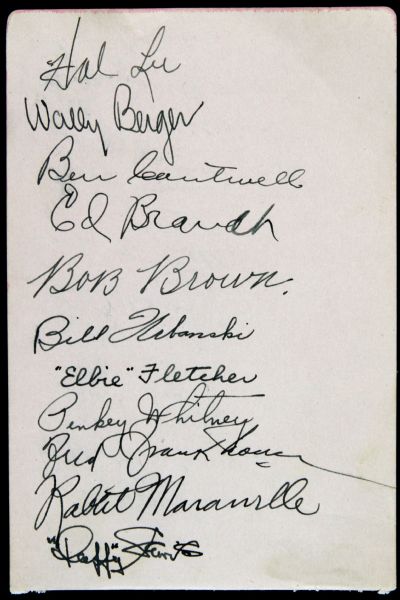 Hal Lee
Wally Berger
Ben Cantwell
Ed Brandt
Bob Brown.
Bill Urbanski
"Elbie" Fletcher
Pinkey Whitney
Fred Frankhouse
Rabbit Maranville
"Duffy" Lewis